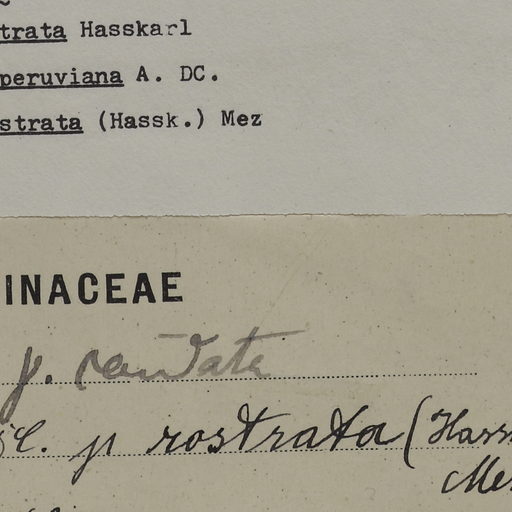 trata Hasskarl
peruviana A. DC.
strata (Hassk.) Mez
INACEAE
p. caudata
p rostrata (Hassk
Mez